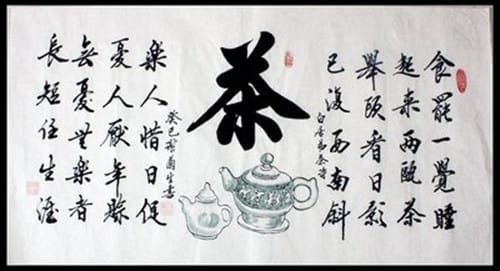 食罷一覺睡
起來兩甌茶
舉頭看日影
已復西南斜
白居易茶詩
茶
樂人惜日促
憂人厭年賒
無憂無樂者
長短任生涯
癸巳生書